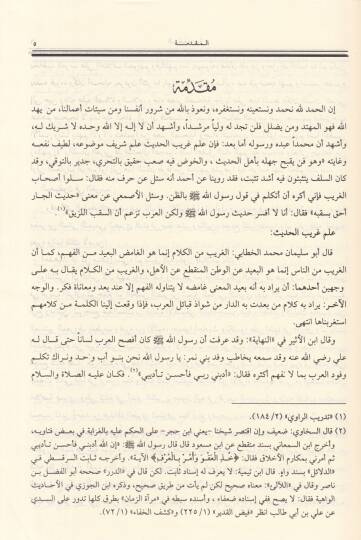 المقدمة ٥
مُقَدِّمَة
إن الحمد لله نحمد ونستعينه ونستغفره، ونعوذ بالله من شرور أنفسنا ومن سيئات أعمالنا، من يهد
الله فهو المهتد ومن يضلل فلن تجد له ولياً مرشداً، وأشهد أن لا إله إلا الله وحده لا شريك له،
وأشهد أن محمداً عبده ورسوله أما بعد: فإن علم غريب الحديث علم شريف موضوعه، لطيف نفعه
وغايته «وهو فن قبيح جهله بأهل الحديث، والخوض فيه صعب حقيق بالتحري، جدير بالتوقي، وقد
كان السلف يتثبتون فيه أشد تثبت، فقد روينا عن أحمد أنه سئل عن حرف منه فقال: سلوا أصحاب
الغريب فإني أكره أن أتكلم في قول رسول الله ﷺ بالظن. وسئل الأصمعي عن معنى «حديث الجار
أحق بسقبه» فقال: أنا لا أفسر حديث رسول الله ﷺ ولكن العرب تزعم أن السقب اللزيق»(١).
علم غريب الحديث:
قال أبو سليمان محمد الخطابي: الغريب من الكلام إنما هو الغامض البعيد من الفهم، كما أن
الغريب من الناس إنما هو البعيد عن الوطن المنقطع عن الأهل، والغريب من الكلام يقال به على
وجهين أحدهما: أن يراد به أنه بعيد المعنى غامضه لا يتناوله الفهم إلا عند بعد ومعاناة فكر. والوجه
الآخر: يراد به كلام من بعدت به الدار من شواذ قبائل العرب، فإذا وقعت إلينا الكلمة من كلامهم
استغربناها انتهى.
وقال ابن الأثير في «النهاية»: وقد عرفت أن رسول الله ﷺ كان أفصح العرب لساناً حتى قال له
علي رضي الله عنه وقد سمعه يخاطب وفد بني نهر: يا رسول الله نحن بنو أب واحد ونراك تكلم
وفود العرب بما لا نفهم أكثره فقال: «أدبني ربي فأحسن تأديبي»(٢). فكان عليه الصلاة والسلام
(١) «تدريب الراوي» (١٨٤/٢).
(٢) قال السخاوي: ضعيف وإن اقتصر شيخنا -يعني ابن حجر- على الحكم عليه بالغرابة في بعض فتاويه،
وأخرج ابن السمعاني بسند منقطع عن ابن مسعود قال قال رسول الله ﷺ: «إن الله أدبني فأحسن تأديبي
ثم أمرني بمكارم الأخلاق فقال: ﴿خُذِ الْعَفْوَ وَأْمُرْ بِالْعُرْفِ﴾ الآية». وأخرجه ثابت السرقسطي في
«الدلائل» بسند واهٍ. قال ابن تيمية: لا يعرف له إسناد ثابت. لكن قال في «الدرر» صححه أبو الفضل بن
ناصر وقال في «اللآلئ»: معناه صحيح لكن لم يأت من طريق صحيح، وذكره ابن الجوزي في الأحاديث
الواهية فقال: لا يصح ففي إسناده ضعفاء، وأسنده سبطه في «مرآة الزمان» بطرق كلها تدور على السدي
عن علي بن أبي طالب انظر «فيض القدير» (٢٢٥/١) و«كشف الخفاء» (٧٢/١)